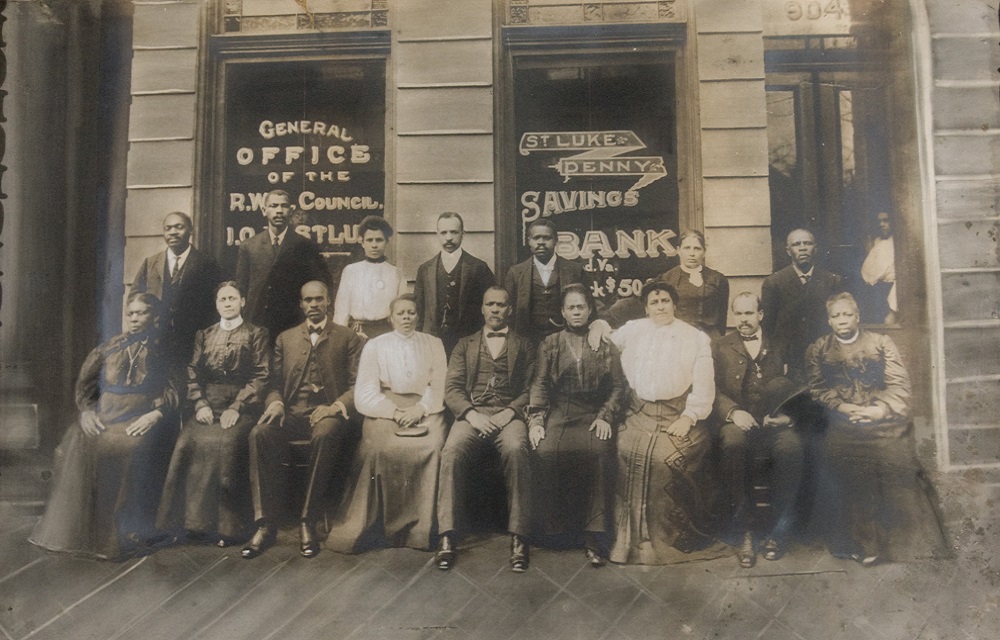 GENERAL
OFFICE
OF THE
COUNCIL.
I.O. ST LU
ST LUKE
PENNY
SAVINGS
BANK
d.Va.
k $50
904